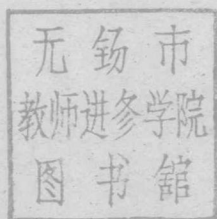 无锡市
教师进修学院
图书馆